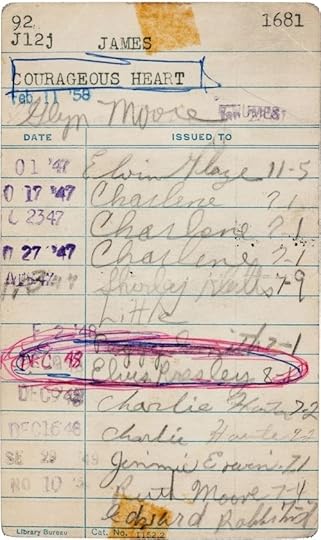 92 1681
J12j JAMES
COURAGEOUS HEART
Feb 11 '58
Glyn Moore
DATE ISSUED TO
01 '47 Elvin 11-5
0 17 '47 Charlene 7-1
2347 Charlene 7-1
27 '47 Charlene 7-1
'47 Shirley 7-9
Little
F 2 '48 Peggy 7-1
DEC '48 Elvis Presley 8-
DEC 9 '48 Charlie 7-2
DEC 16 '48 Charlie
SE '49 Jimmie Erwin 7-1
NO 10 5 Ruth Moore 7-4
Edward
Library Bureau Cat. No. 1152.2